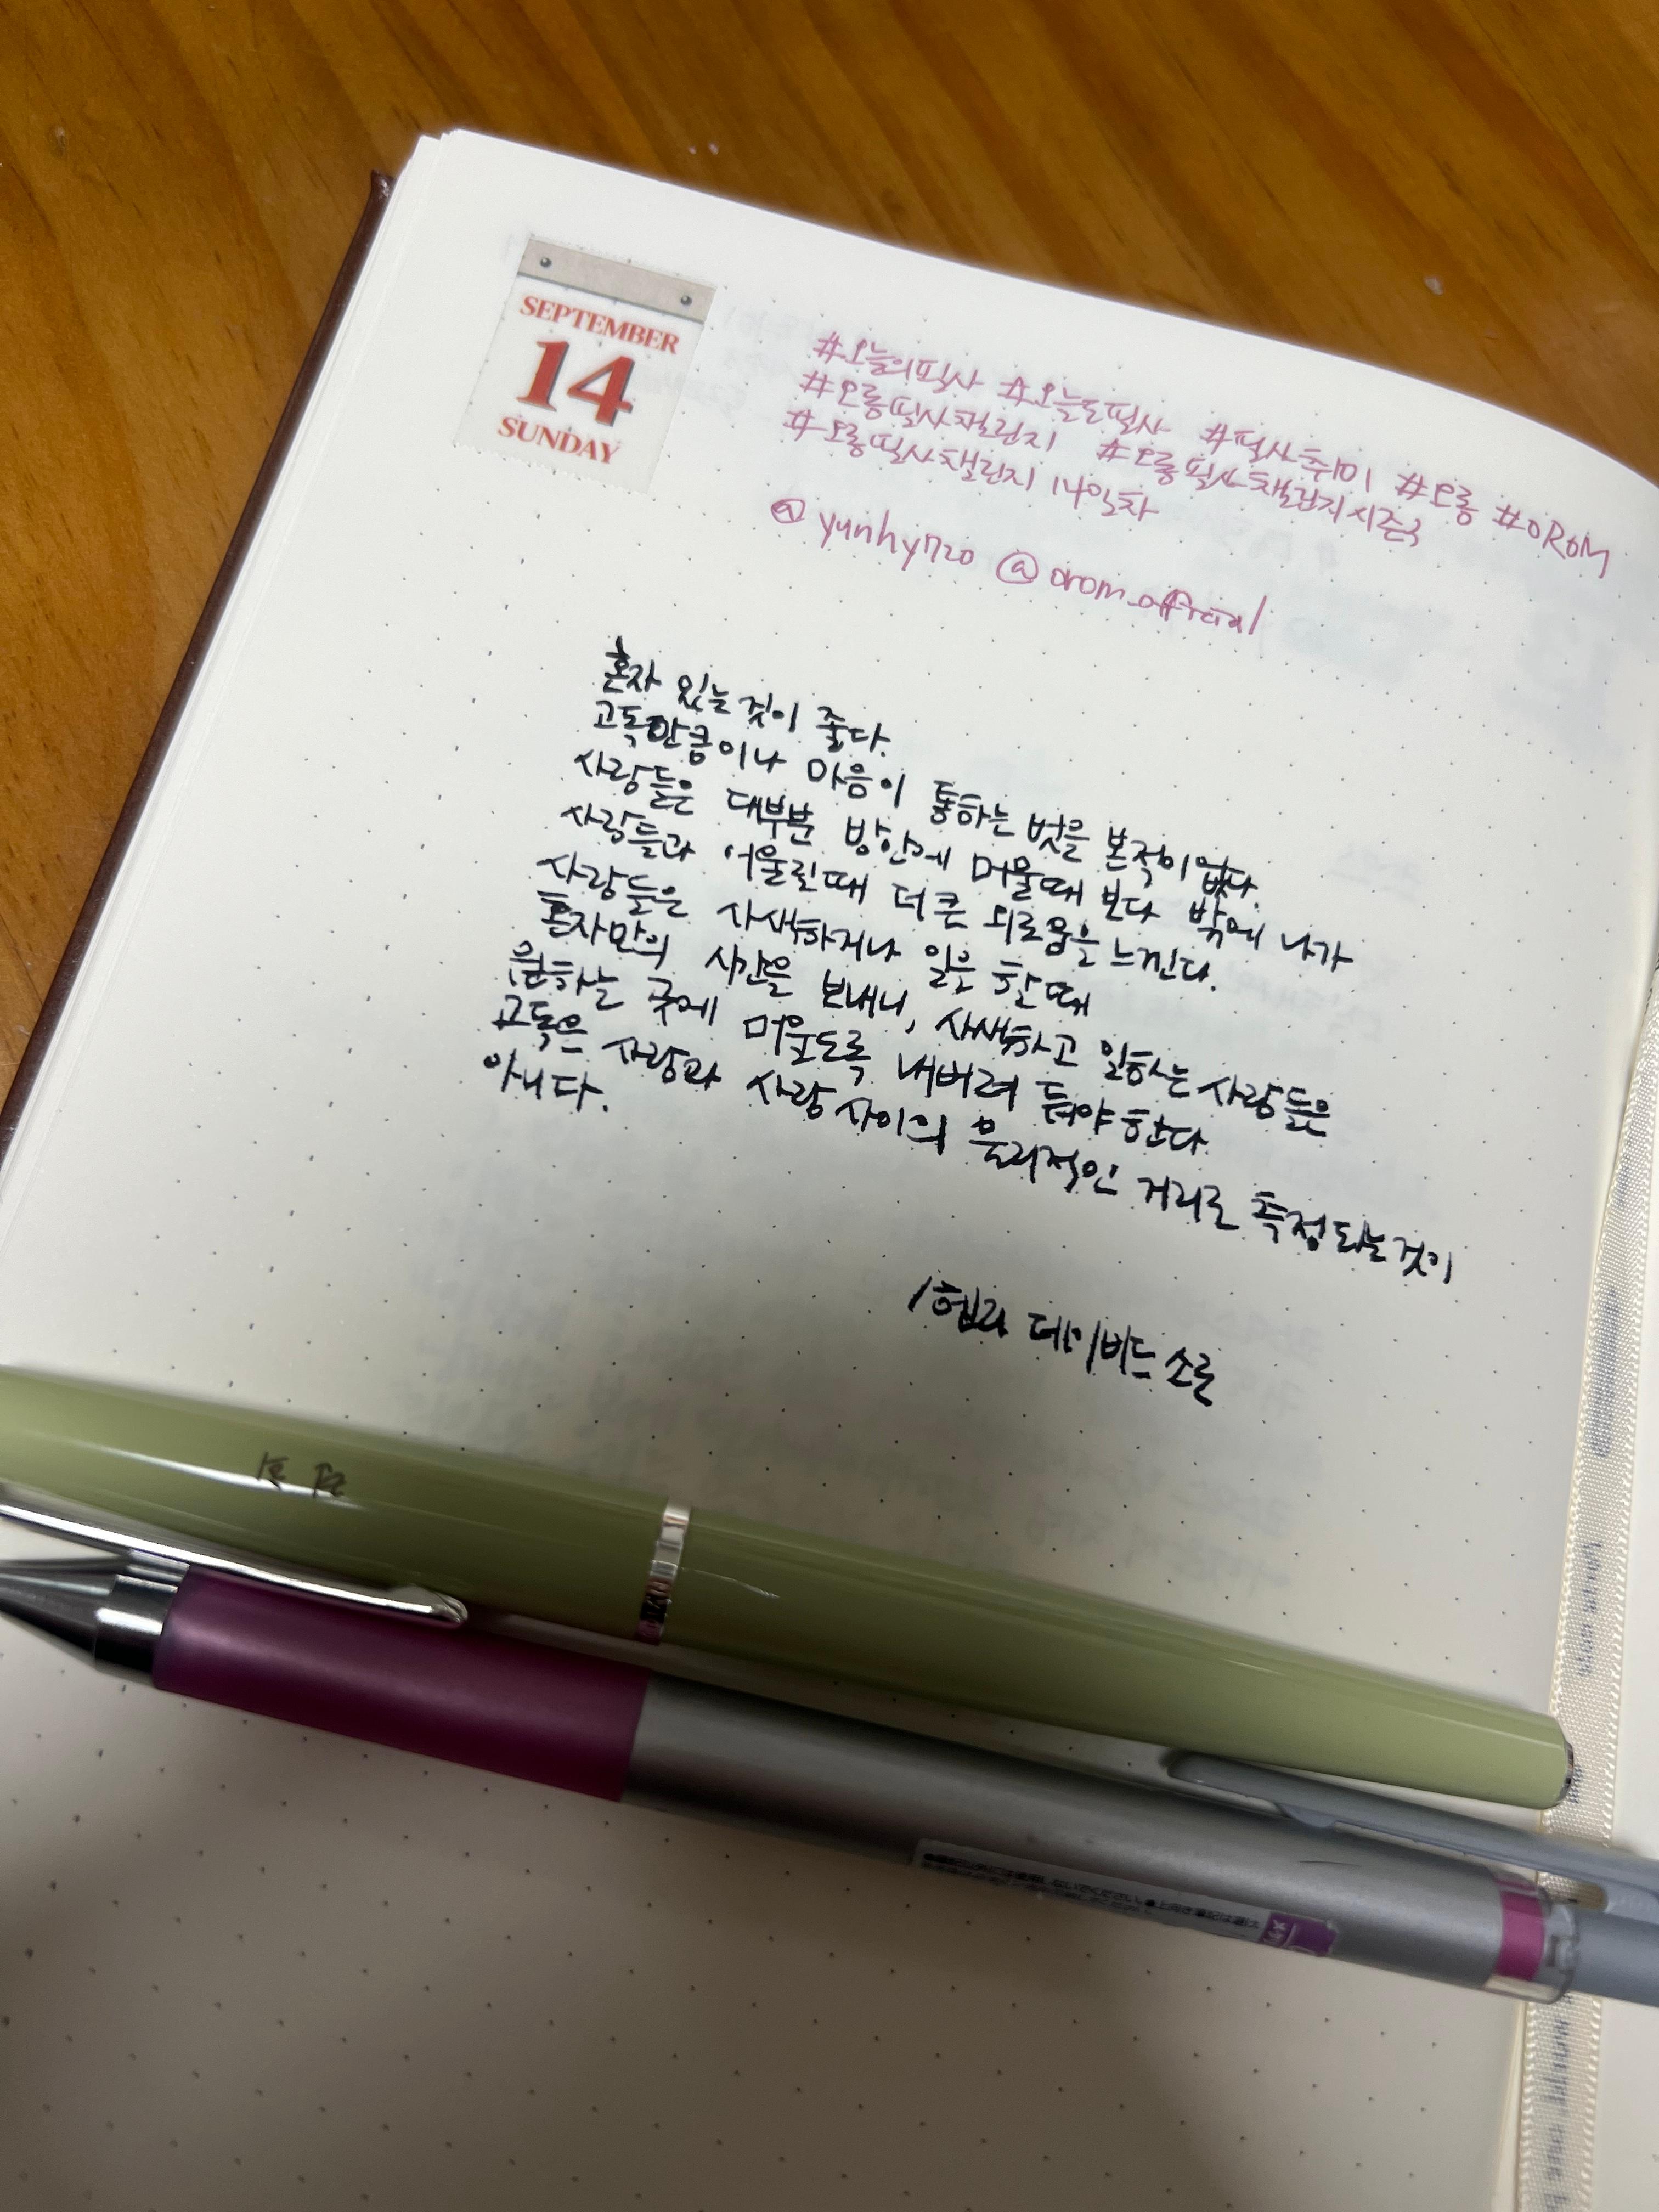 SEPTEMBER
14
SUNDAY
#오늘의필사 #오늘도필사 #필사취미 #오롬 #OROM
#오롬필사챌린지 #오롬필사챌린지시즌3
#오롬필사챌린지 14일차
@yunhy720 @orom_official
혼자 있는것이 좋다.
고독만큼이나 마음이 통하는 벗을 본적이 없다.
사람들은 대부분 방안에 머물때 보다 밖에 나가
사람들과 어울릴때 더 큰 외로움을 느낀다.
사람들은 사색하거나 일을 할때
혼자만의 시간을 보내니, 사색하고 일하는 사람들은
원하는 곳에 머물도록 내버려 둬야 한다.
고독은 사람과 사람 사이의 물리적인 거리로 측정되는것이
아니다.
/헨리 데이비드 소로